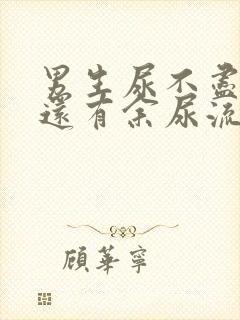 男生尿不盡
還有余尿流
顧華寧